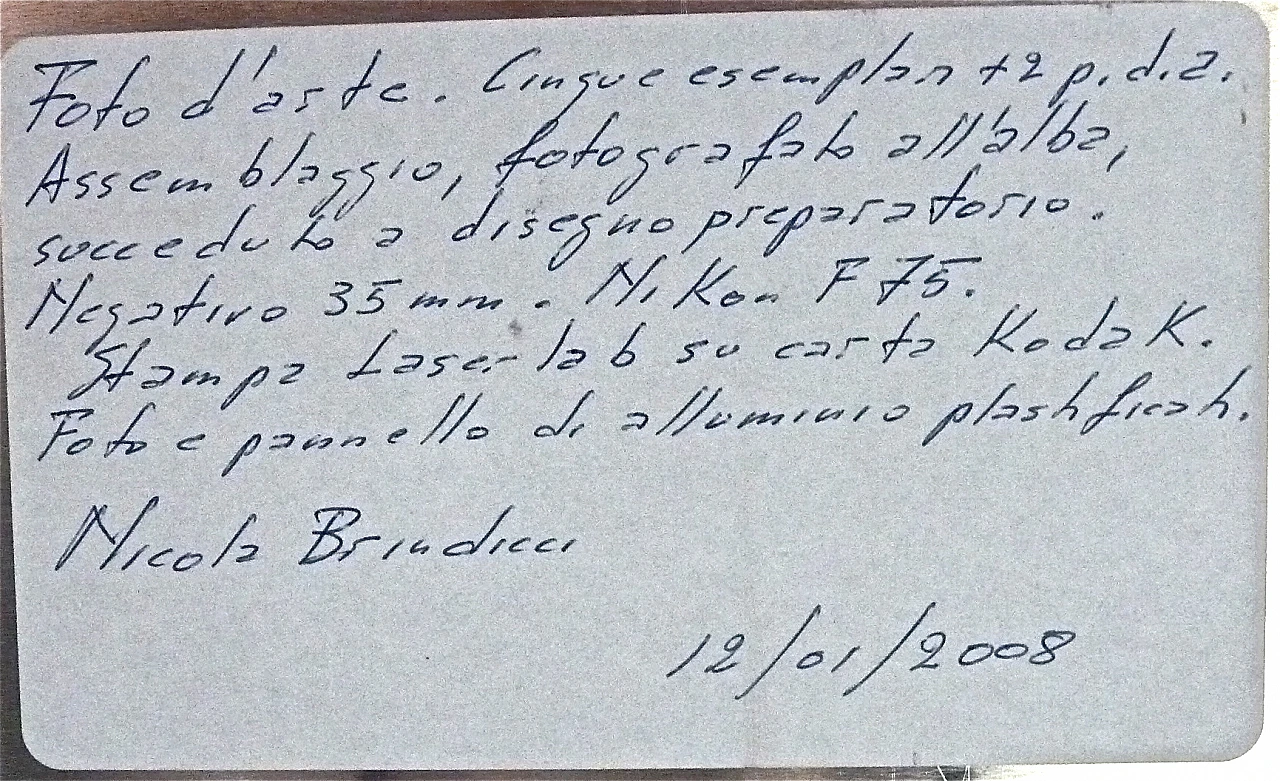 Foto d'arte. Cinque esemplari +2 p.d.a.
Assemblaggio, fotografato all'alba,
succeduto a disegno preparatorio.
Negativo 35mm. Nikon F75.
Stampa Laserlab su carta Kodak.
Foto e pannello di alluminio plastificati.
Nicola Brindicci
12/01/2008